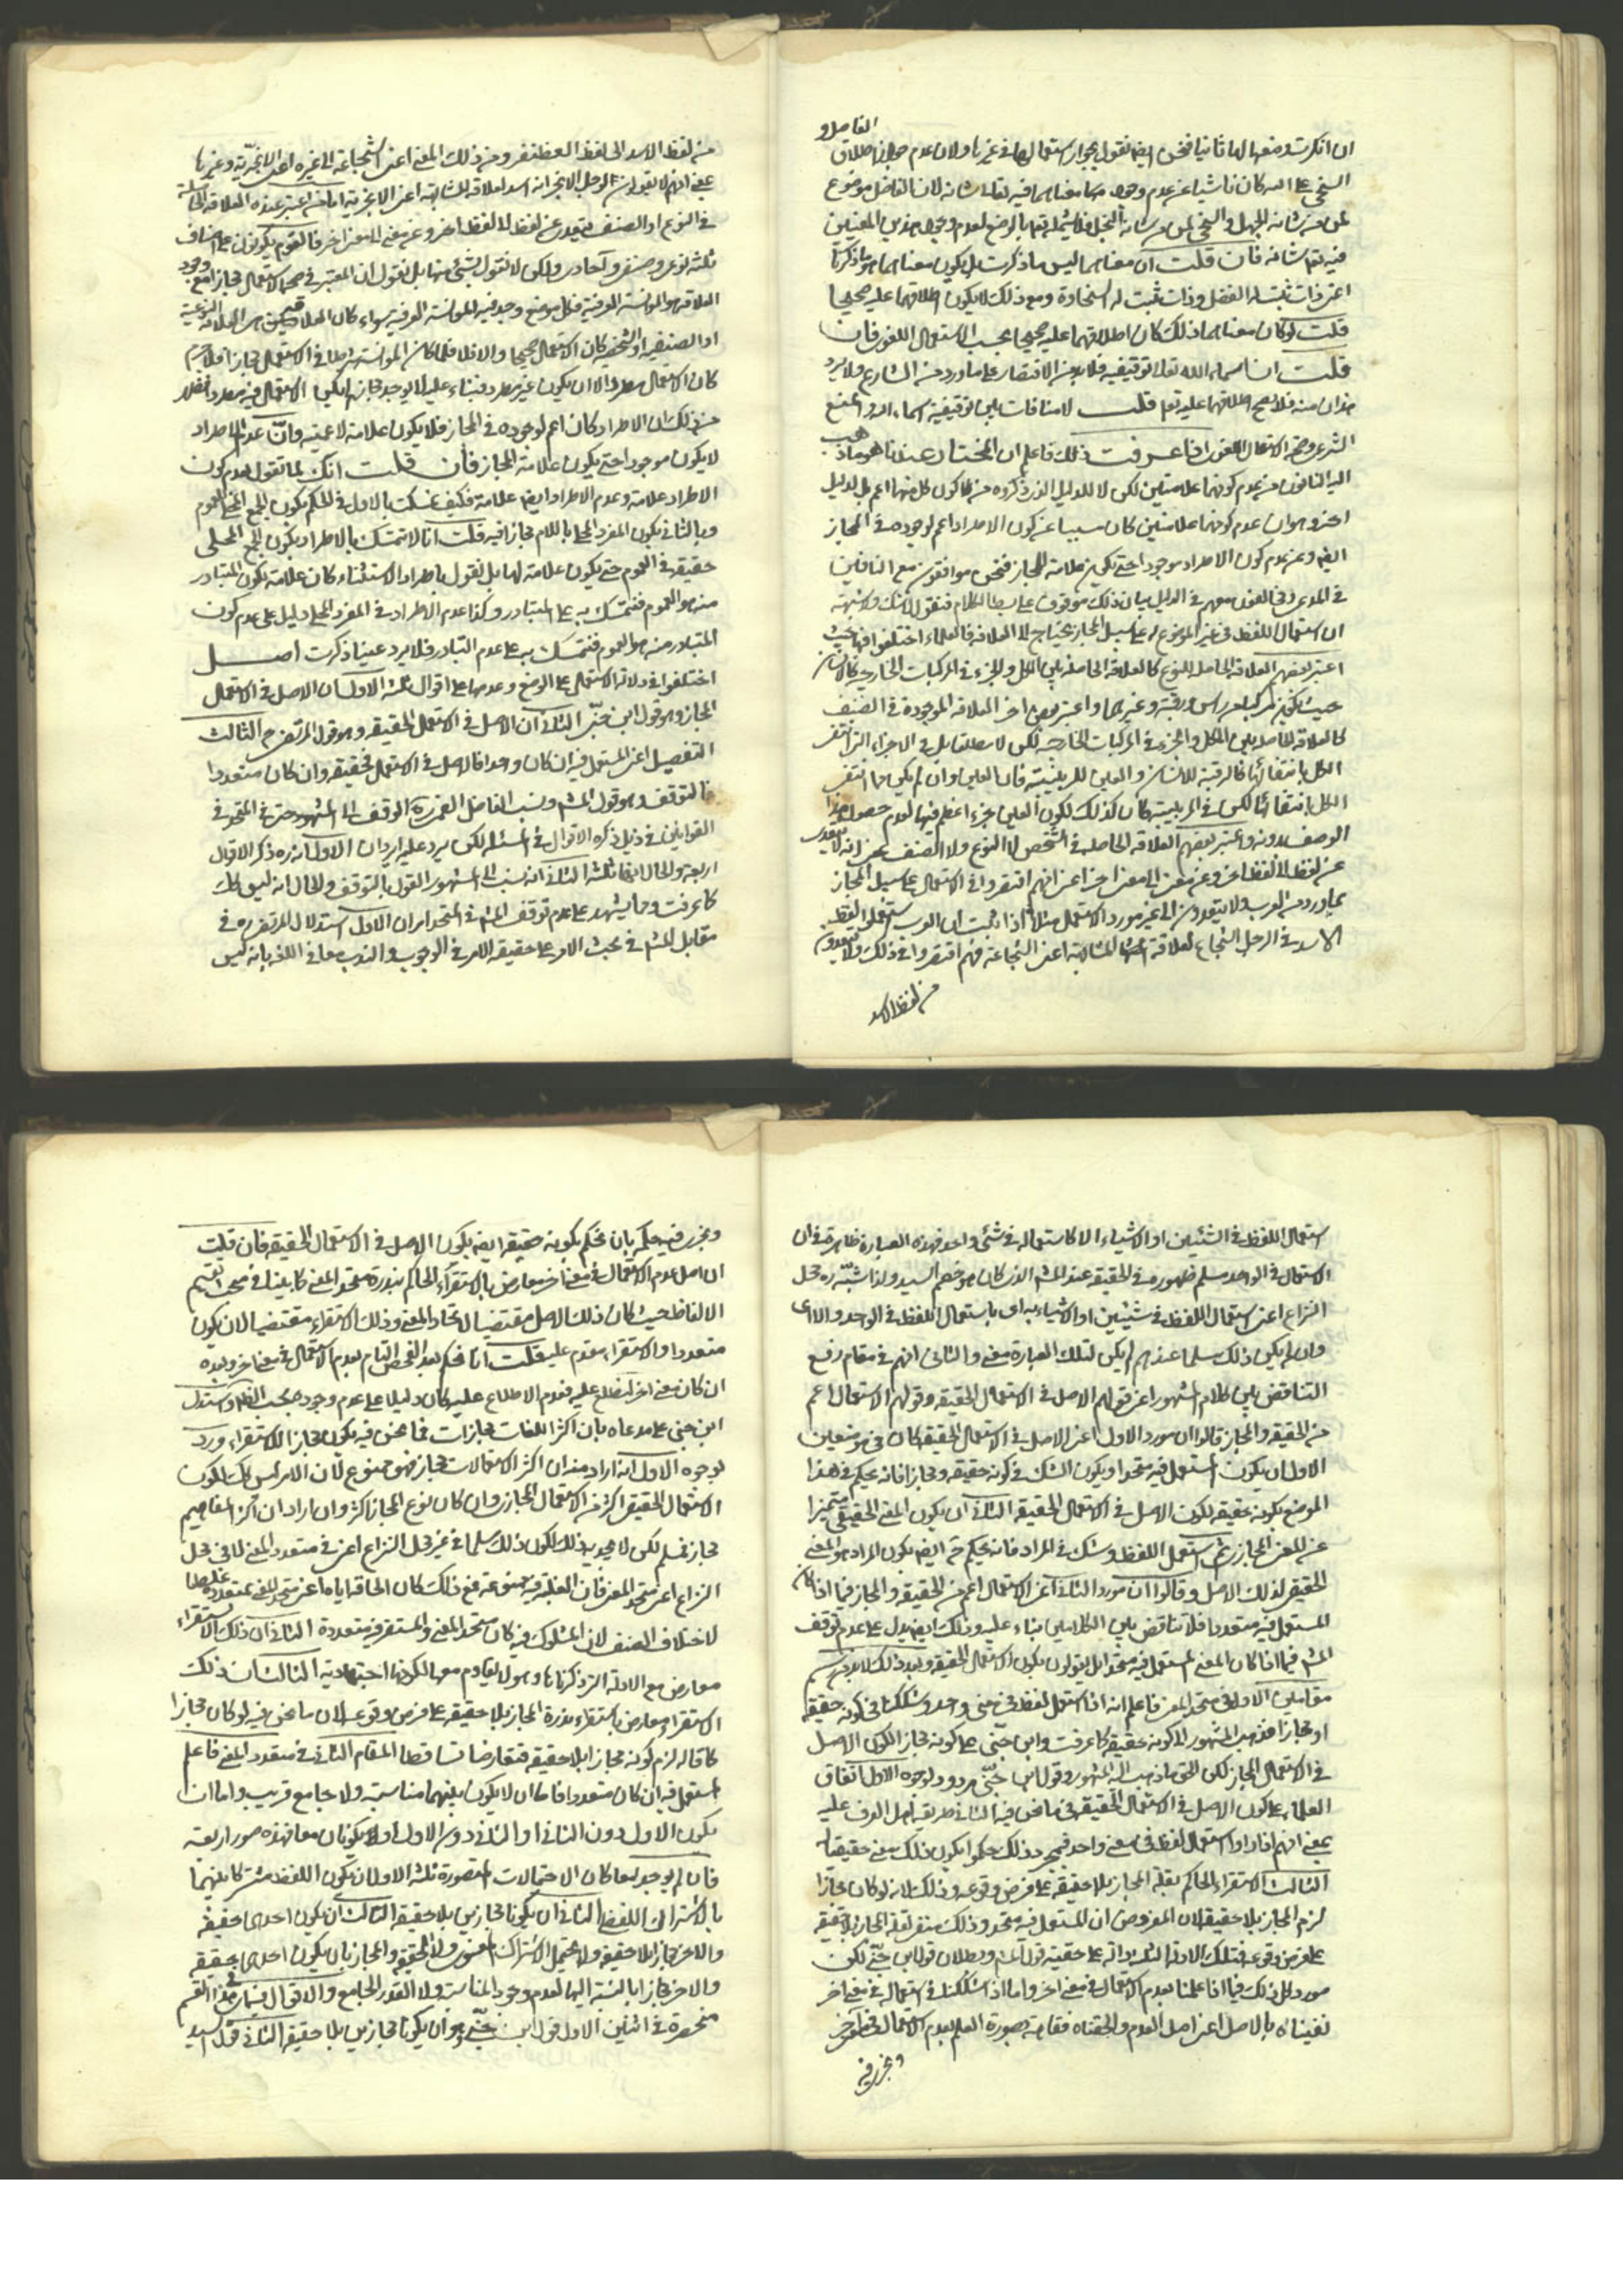 الفاضل و
ان انكرت وضعها لها ثانيا فنحن ايضا نقول بجواز استعمالها في غيرها ولان عدم جواز اطلاق
السخي على الله كان ناشيا عن عدم وجود معناهما فيه تعالى شانه لان الفاضل موضوع
لمن من شانه الجهل و السخي لمن من شانه البخل فلا يشمله تعالى بالوضع لعدم وجود هذين المعنيين
فيه تعالى شانه فان قلت ان معناهما ليس ما ذكرت بل يكون معناهما هو ما ذكرنا
اعني ذات ثبت له الفضل وذات ثبت له السخاوة ومع ذلك لا يكون اطلاقهما عليه صحيحا
قلت لو كان معناهما ذلك كان اطلاقهما عليه صحيحا بحسب الاستعمال اللغوي فان
قلت ان اسماء الله تعالى توقيفية فلا بد من الاقتصار على ما ورد من الشارع ولا يرد
هذان منه فلا يصح اطلاقهما عليه تعالى قلت لا منافات بين توقيفية اسماء الله و المنع
الشرعي وصحة الاستعمال اللغوي اذا عرفت ذلك فاعلم ان المختار عندنا هو ما ذهب
اليه النافون من عدم كونهما علامتين لكن لا للدليل الذي ذكروه من كون كل منهما اعم بل لدليل
اخر وهو ان عدم كونهما علامتين كان مسببا عن كون الاطراد اعم لوجوده في المجاز
ايضا وعن عدم كون الاطراد موجودا حتى يكون علامة للمجاز فنحن موافقون مع النافين
في المدعى ومخالفون معهم في الدليل بيان ذلك موقوف على بسط الكلام فنقول لا شك ولا شبهة
ان استعمال اللفظ في غير الموضوع له على سبيل المجاز يحتاج الى العلاقة فالعلماء اختلفوا فيها حيث
اعتبر بعضهم العلاقة الحاصلة للنوع كالعلاقة الحاصلة بين الكل والجزء في المركبات الخارجية كالانسان
حيث يكون مركبا من راس ورقبة وغيرهما واعتبر بعض اخر العلاقة الموجودة في الصنف
كالعلاقة الحاصلة بين الكل والجزء في المركبات الخارجية لكن لا مطلقا بل في الاجزاء التي انتفى
الكل بانتفائها كالرقبة للانسان والعين للربيئة فان العين وان لم يكن مما انتفى
الكل بانتفائها لكن في الربيئة كان كذلك لكون العين جزء اعظم فيها لعدم حصول هذا
الوصف بدونه واعتبر بعضهم العلاقة الحاصلة في الشخص لا النوع ولا الصنف بمعنى انه لا يتعدى
عن لفظ الى لفظ اخر وعن معنى الى معنى اخر اعني انهم اقتصروا في الاستعمال على سبيل المجاز
بما ورد من العرب ولا يتعدون الى غير مورد الاستعمال مثلا اذا ثبت ان العرب استعمل لفظ
الاسد في الرجل الشجاع لعلاقة المشابهة اعني الشجاعة فهم اقتصروا في ذلك ولا يتعدون
من لفظ الاسد
من لفظ الاسد الى لفظ الغضنفر ومن ذلك المعنى اعني الشجاعة الى غيره اعني الابخرية وغيرها
بمعنى انهم لا يقولون للرجل الابخر انه اسد لعلاقة المشابهة اعني الابخرية اما من اعتبر عنده العلاقة الحاصلة
في النوع او الصنف يتعدى عن لفظ الى لفظ اخر وعن معنى الى معنى اخر فالقوم يكونون على اصناف
ثلثة نوعي وصنفي وآحادي ولكن لا نقول بشئ منها بل نقول ان المعتبر في صحة الاستعمال مجازا مع وجود
العلاقة هو الموانسة العرفية فكل موضع وجد فيه الموانسة العرفية سواء كان العلاقة من العلاقة النوعية
او الصنفية او الشخصية كان الاستعمال صحيحا والا فلا فلما كان الموانسة شرطا في الاستعمال مجازا فلا جرم
كان الاستعمال مطردا الا ان يكون غير مطرد فبناء عليه لا يوجد مجاز لم يكن الاستعمال فيه مطردا فظهر
من ذلك ان الاطراد كان اعم لوجوده في المجاز فلا يكون علامة لاعميته وان عدم الاطراد
لا يكون موجودا حتى يكون علامة المجاز فان قلت انك لما تقول بعدم كون
الاطراد علامة وعدم الاطراد ايضا علامة فكيف تمسكت بالاول في الحكم بكون الجمع المحلى للعموم
وبالثاني بكون المفرد المحلى باللام مجازا فيه قلت انا لا نتمسك بالاطراد بكون الجمع المحلى
حقيقة في العموم حتى يكون علامة لها بل نقول باطراد الاستثناء كان علامة بكون المتبادر
منه هو العموم فنتمسك به على التبادر وكذا عدم الاطراد في المفرد المحلى دليل على عدم كون
المتبادر منه هو العموم فنتمسك به على عدم التبادر فلا يرد علينا ما ذكرت اصل
اختلفوا في دلالة الاستعمال على الوضع وعدمها على اقوال ثلثة الاول ان الاصل في الاستعمال
المجاز وهو قول ابن جنّي الثاني ان الاصل في الاستعمال الحقيقة وهو قول المرتضى ره الثالث
التفصيل اعني المستعمل فيه ان كان واحدا فالاصل في الاستعمال الحقيقة وان كان متعددا
فالتوقف وهو قول المشهور ونسب الفاضل القمي ره الوقف الى المشهور حتى في المتحد في
القوانين في ذيل ذكره الاقوال في المسئلة لكن يرد عليه ايرادان الاول انه ره ذكر الاقوال
اربعة والحال انها ثلثة الثاني انه نسب الى المشهور القول بالتوقف والحال انه ليس كك
كما عرفت ومما يشهد على عدم توقف المشهور في المتحد امران الاول استدلال المرتضى ره في
مقابل المشهور في بحث الامر على حقيقة الامر في الوجوب والندب معا في اللغة بانه ليس
استعمال اللفظ في الشيئين او الاشياء الا كاستعماله في شئ واحد فهذه العبارة ظاهرة في ان
الاستعمال في الواحد مسلم ظهوره في الحقيقة عند المشهور الذي كان هو خصم السيد ولذا شبّه ره محل
النزاع اعني استعمال اللفظ في شيئين او الاشياء به اى باستعمال اللفظ في الواحد والا اى
وان لم يكن ذلك مسلما عندهم لم يكن لتلك العبارة معنى والثاني انهم في مقام رفع
التناقض بين كلام المشهور اعني قولهم الاصل في الاستعمال الحقيقة وقولهم الاستعمال اعم
من الحقيقة والمجاز قالوا ان مورد الاول اعني الاصل في الاستعمال الحقيقة كان في موضعين
الاول ان يكون المستعمل فيه متحدا ويكون الشك في كونه حقيقة ومجازا فانه يحكم في هذا
الموضع بكونه حقيقة لكون الاصل في الاستعمال الحقيقة الثاني ان يكون المعنى الحقيقي متميزا
عن المعنى المجازي ثم استعمل اللفظ وشك في المراد فانه يحكم ح ايضا بكون المراد هو المعنى
الحقيقي لذلك الاصل وقالوا ان مورد الثاني اعني الاستعمال اعم من الحقيقة والمجاز فيما اذا كان
المستعمل فيه متعددا فلا تناقض بين الكلامين بناء عليه وذلك ايضا يدل على عدم توقف
المشهور فيما اذا كان المعنى المستعمل فيه متحدا بل يقولون بكون الاستعمال الحقيقة وبعد ذلك
مقامين الاول في متحد المعنى فاعلم انه اذا استعمل لفظ في معنى واحد وشككنا في كونه حقيقة
او مجازا فذهب المشهور الى كونه حقيقة كما عرفت وابن جنّي على كونه مجازا لكون الاصل
في الاستعمال المجاز لكن الحق ما ذهب اليه المشهور وقول ابن جنّي مردود لوجوه الاول اتفاق
العلماء على كون الاصل في الاستعمال الحقيقة في ما نحن فيه الثاني طريقة اهل العرف عليه
بمعنى انهم اذا راوا استعمال لفظ في معنى واحد فبمجرد ذلك حكموا بكون ذلك معنى حقيقيا له
الثالث الاستقراء الحاكم بقلة المجاز بلا حقيقة على فرض وقوعه وذلك لانه لو كان مجازا
لزم المجاز بلا حقيقة لان المفروض ان المستعمل فيه متحد وذلك منفي لقلة المجاز بلا حقيقة
على فرض وقوعه فتلك الادلة الثلثة دالة على حقية قول المشهور وبطلان قول ابن جنّي لكن
مورد كل ذلك فيما اذا علمنا بعدم الاستعمال في معنى اخر واما اذا شككنا في استعماله في معنى اخر
نفيناه بالاصل اعني اصل العدم والحقناه بصورة العلم بعدم الاستعمال في معنى آخر
ويجري فيه
ويجري فيه حكمه بان نحكم بكونه حقيقة ايضا بكون الاصل في الاستعمال الحقيقة فان قلت
ان اصل عدم الاستعمال في معنى اخر معارض بالاستقراء الحاكم بندرة متحد المعنى كما بينا في مبحث تقسيم
الالفاظ حيث كان ذلك الاصل مقتضيا لاتحاد المعنى وذلك الاستقراء مقتضيا لان يكون
متعددا والاستقراء مقدم عليه قلت انا نحكم بعد الفحص التام بعدم الاستعمال في معنى اخر وبعده
ان كان معنى اخر لنطلع عليه فعدم الاطلاع عليه كان دليلا على عدم وجوده بحسب الظاهر واستدل
ابن جنى على مدعاه بان اكثر اللغات مجازات فما نحن فيه يكون مجازا للاستقراء ورد
لوجوه الاول انه اراد منه ان اكثر الاستعمالات مجاز فهو ممنوع لان الامر ليس كك لكون
الاستعمال الحقيقي اكثر من الاستعمال المجازي وان كان نوع المجاز اكثر وان اراد ان اكثر المفاهيم
مجاز فمسلم لكن لا يجديه ذلك لكون ذلك مسلما في غير محل النزاع اعني في متعدد المعنى لا في محل
النزاع اعني متحد المعنى فان الغلبة فيه ممنوعة فمع ذلك كان الحاقه اياه اعني متحد المعنى بمتعدده غلطا
لاختلاف الصنف لان المشكوك فيه كان متحد المعنى والمستقرء فيه متعدده الثاني ان ذلك الاستقراء
معارض مع الادلة التي ذكرناها وهو لا يقاوم معها لكونها اجتهادية الثالث ان ذلك
الاستقراء معارض باستقراء ندرة المجاز بلا حقيقة على فرض وقوعه لان ما نحن فيه لو كان مجازا
كما قاله لزم كونه مجازا بلا حقيقة فتعارضا تساقطا المقام الثاني في متعدد المعنى فاعلم
المستعمل فيه ان كان متعددا فاما ان لا يكون بينهما مناسبة ولا جامع قريب واما ان
يكون الاول دون الثاني او الثاني دون الاول او يكونان معا فهذه صور اربعة
فان لم يوجد معا كان الاحتمالات المتصورة ثلثة الاول ان يكون اللفظ مشتركا بينهما
بالاشتراك اللفظي الثاني ان يكونا مجازين بلا حقيقة الثالث ان يكون احدهما حقيقة
والاخر مجازا بلا حقيقة ولا يحتمل الاشتراك المعنوي ولا الحقيقة والمجاز بان يكون احدهما حقيقة
والاخر مجازا بالنسبة اليها لعدم وجود المناسبة ولا القدر الجامع والاقوال في هذا القسم
منحصرة في اثنين الاول قول ابن جنّي وهو ان يكونا مجازين بلا حقيقة الثاني قول السيد